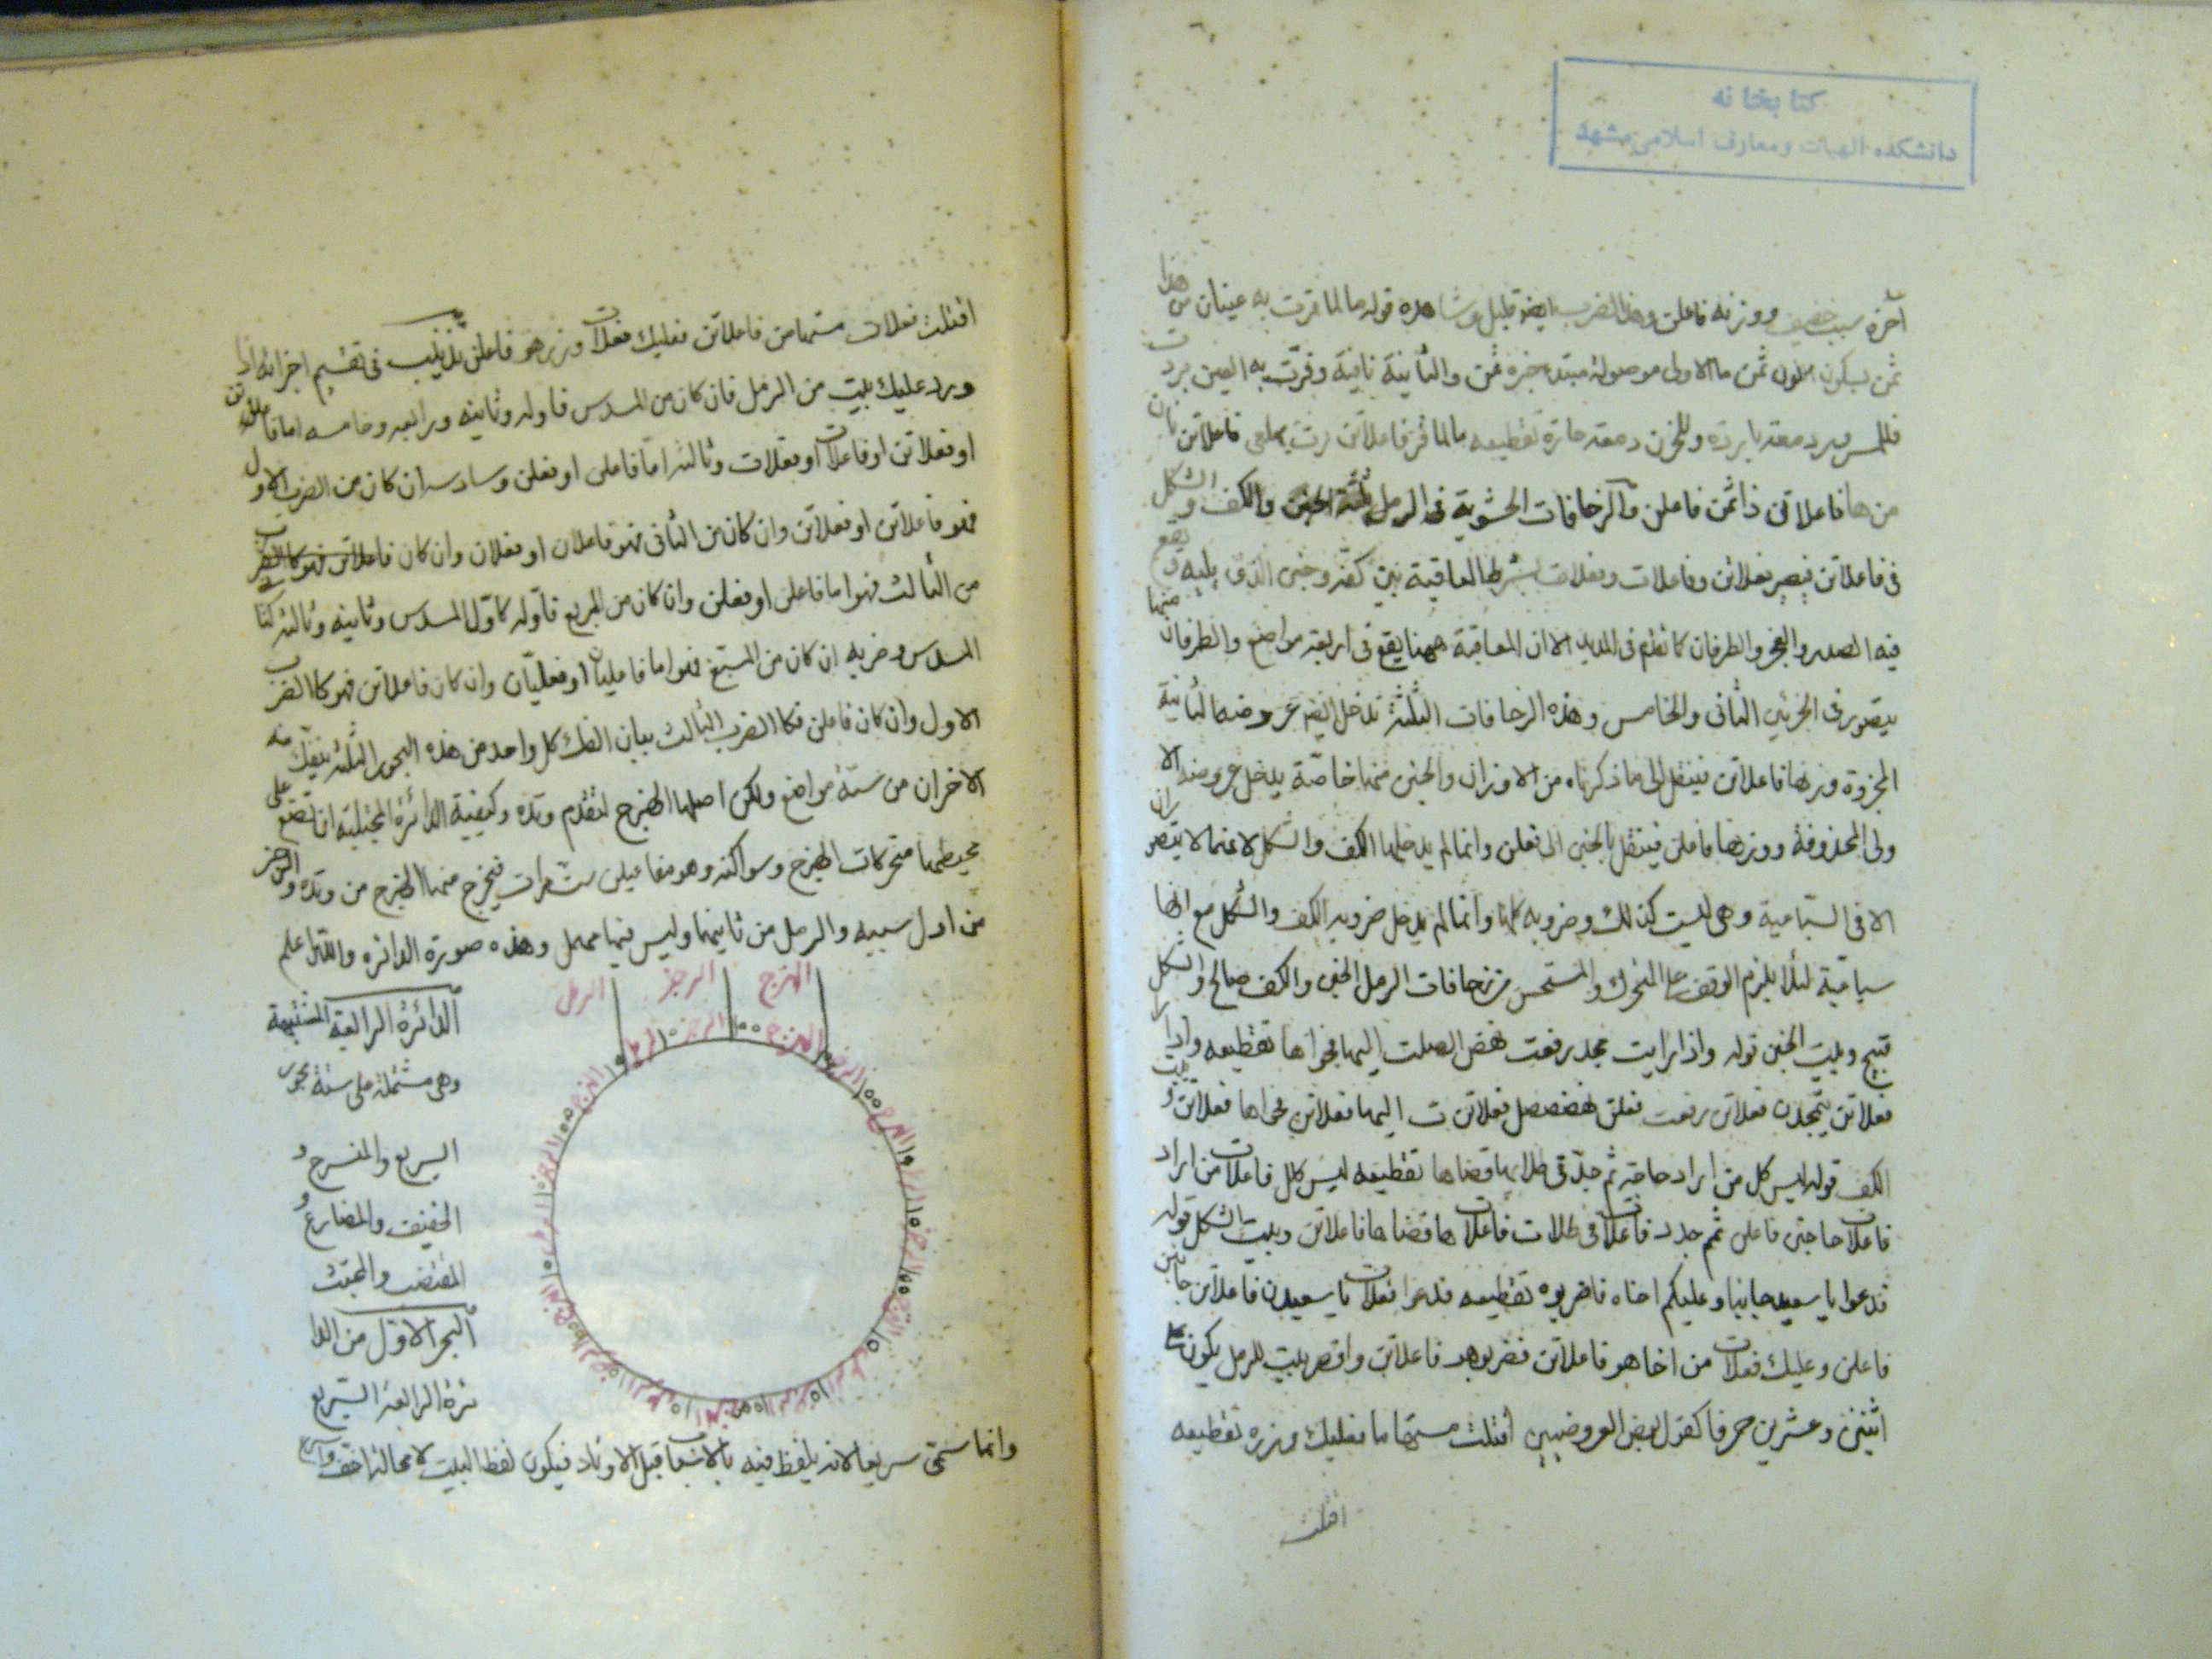 كتابخانه
دانشكده الهيات ومعارف اسلامى مشهد
آخره سبب خفيف ووزنه فاعلن وهذا الضرب ايضا قليل وشاهده قوله ما لما قرت به عينان من هذا
ثمن بسكون النون ثمن ما الاولى موصولة مبتدء خبره ثمن والثانية نافية وقرت به العين برد
فللسرور دمعة باردة وللحزن دمعة حارة تقطيعه ما لما قر فاعلاتن رت به فاعلاتن
من ها فاعلاتن ذا ثمن فاعلن والزحافات الحشوية فى الرمل ثلثة الخبن والكف والشكل
فى فاعلاتن فيصير فعلاتن وفاعلات وفعلات بشرط المعاقبة بين كفه وخبن الذى يليه
فيه الصدر والعجز والطرفان كما تقدم فى المديد الا ان المعاقبة ههنا يقع فى اربعة مواضع والطرفان منها
يتصور فى الجزئين الثانى والخامس وهذه الزحافات الثلثة تدخل ايضا عروضه الثانية
المجزوة وزنها فاعلاتن فينتقل الى ما ذكرناه من الاوزان والخبن منها خاصة يدخل عروضه الا
ولى المحذوفة ووزنها فاعلن فينتقل بالخبن الى فعلن وانما لم يدخلها الكف والشكل لانهما لا يتصوران
الا فى السباعية وهى ليست كذلك وضروبه كلها وانما لم يدخل ضروبه الكف والشكل مع انها
سباعية لئلا يلزم الوقف على المتحرك والمستحسن من زحافات الرمل الخبن والكف صالح والشكل
قبيح وبيت الخبن قوله واذا راية مجد رفعت نهض الصلت اليها فحواها تقطيعه واذا را
فعلاتن يتمجدن فعلاتن رفعت فعلن نهضصصل فعلاتن ت اليها فعلاتن فحواها فعلاتن وبيت
الكف قوله ليس كل من اراد حاجة ثم جد فى طلابها قضاها تقطيعه ليس كلل فاعلات من اراد
فاعلات حاجتن فاعلن ثم جدد فاعلات فى طلاب فاعلات ها قضاها فاعلاتن وبيت الشكل قوله
فدعوا يا سعيد جانبا وعليكم اخاه فاضربوه تقطيعه فدعوا فعلات يا سعيدن فاعلاتن جانبن
فاعلن وعليك فعلات من اخاهو فاعلاتن فضربوهو فاعلاتن واقصر بيت للرمل يكون على
اثنين وعشرين حرفا كقول بعض العروضيين اقتلت مستهاما فعليك وزره تقطيعه
اقتلت
اقتلت فعلات مستهامن فاعلاتن فعليك فعلات وزرهو فاعلن تذنيب فى تقسيم اجزائه اذا
ورد عليك بيت من الرمل فان كان من المسدس فاوله وثانيه ورابعه وخامسه اما فاعلاتن
او فعلاتن او فاعلات او فعلات وثالثه اما فاعلن او فعلن وسادسه ان كان من الضرب الاول
فهو فاعلاتن او فعلاتن وان كان من الثانى فهو فاعلان او فعلان وان كان
من الثالث فهو اما فاعلن او فعلن وان كان من المربع فاوله كاول المسدس وثانيه وثالثه
المسدس وضربه ان كان من المسبغ فهو اما فاعليان او فعليان وان كان فاعلاتن فهو كالضرب
الاول وان كان فاعلن فكالضرب الثالث بيان الفك كل واحد من هذه البحور الثلثة ينفك منه
الاخران من ستة مواضع ولكن اصلها الهزج لتقدم وتده وكيفية الدائرة المجتلبة ان تضع على
محيطها متحركات الهزج وسواكنه وهو مفاعيلن ست مرات فيخرج منها الهزج من وتده والرجز
من اول سببيه والرمل من ثانيهما وليس فيها مهمل وهذه صورة الدائره والله اعلم
الهزج
الرجز
الرمل
الدائرة الرابعة المشتبهة
وهى مشتملة على ستة بحور
السريع والمنسرح و
الخفيف والمضارع و
المقتضب والمجتث
البحر الاول من الدا
ئرة الرابعة السريع
وانما سمى سريعا لانه يلفظ فيه بالاسباب قبل الاوتاد فيكون لفظ البيت لا محالة اخف واسرع